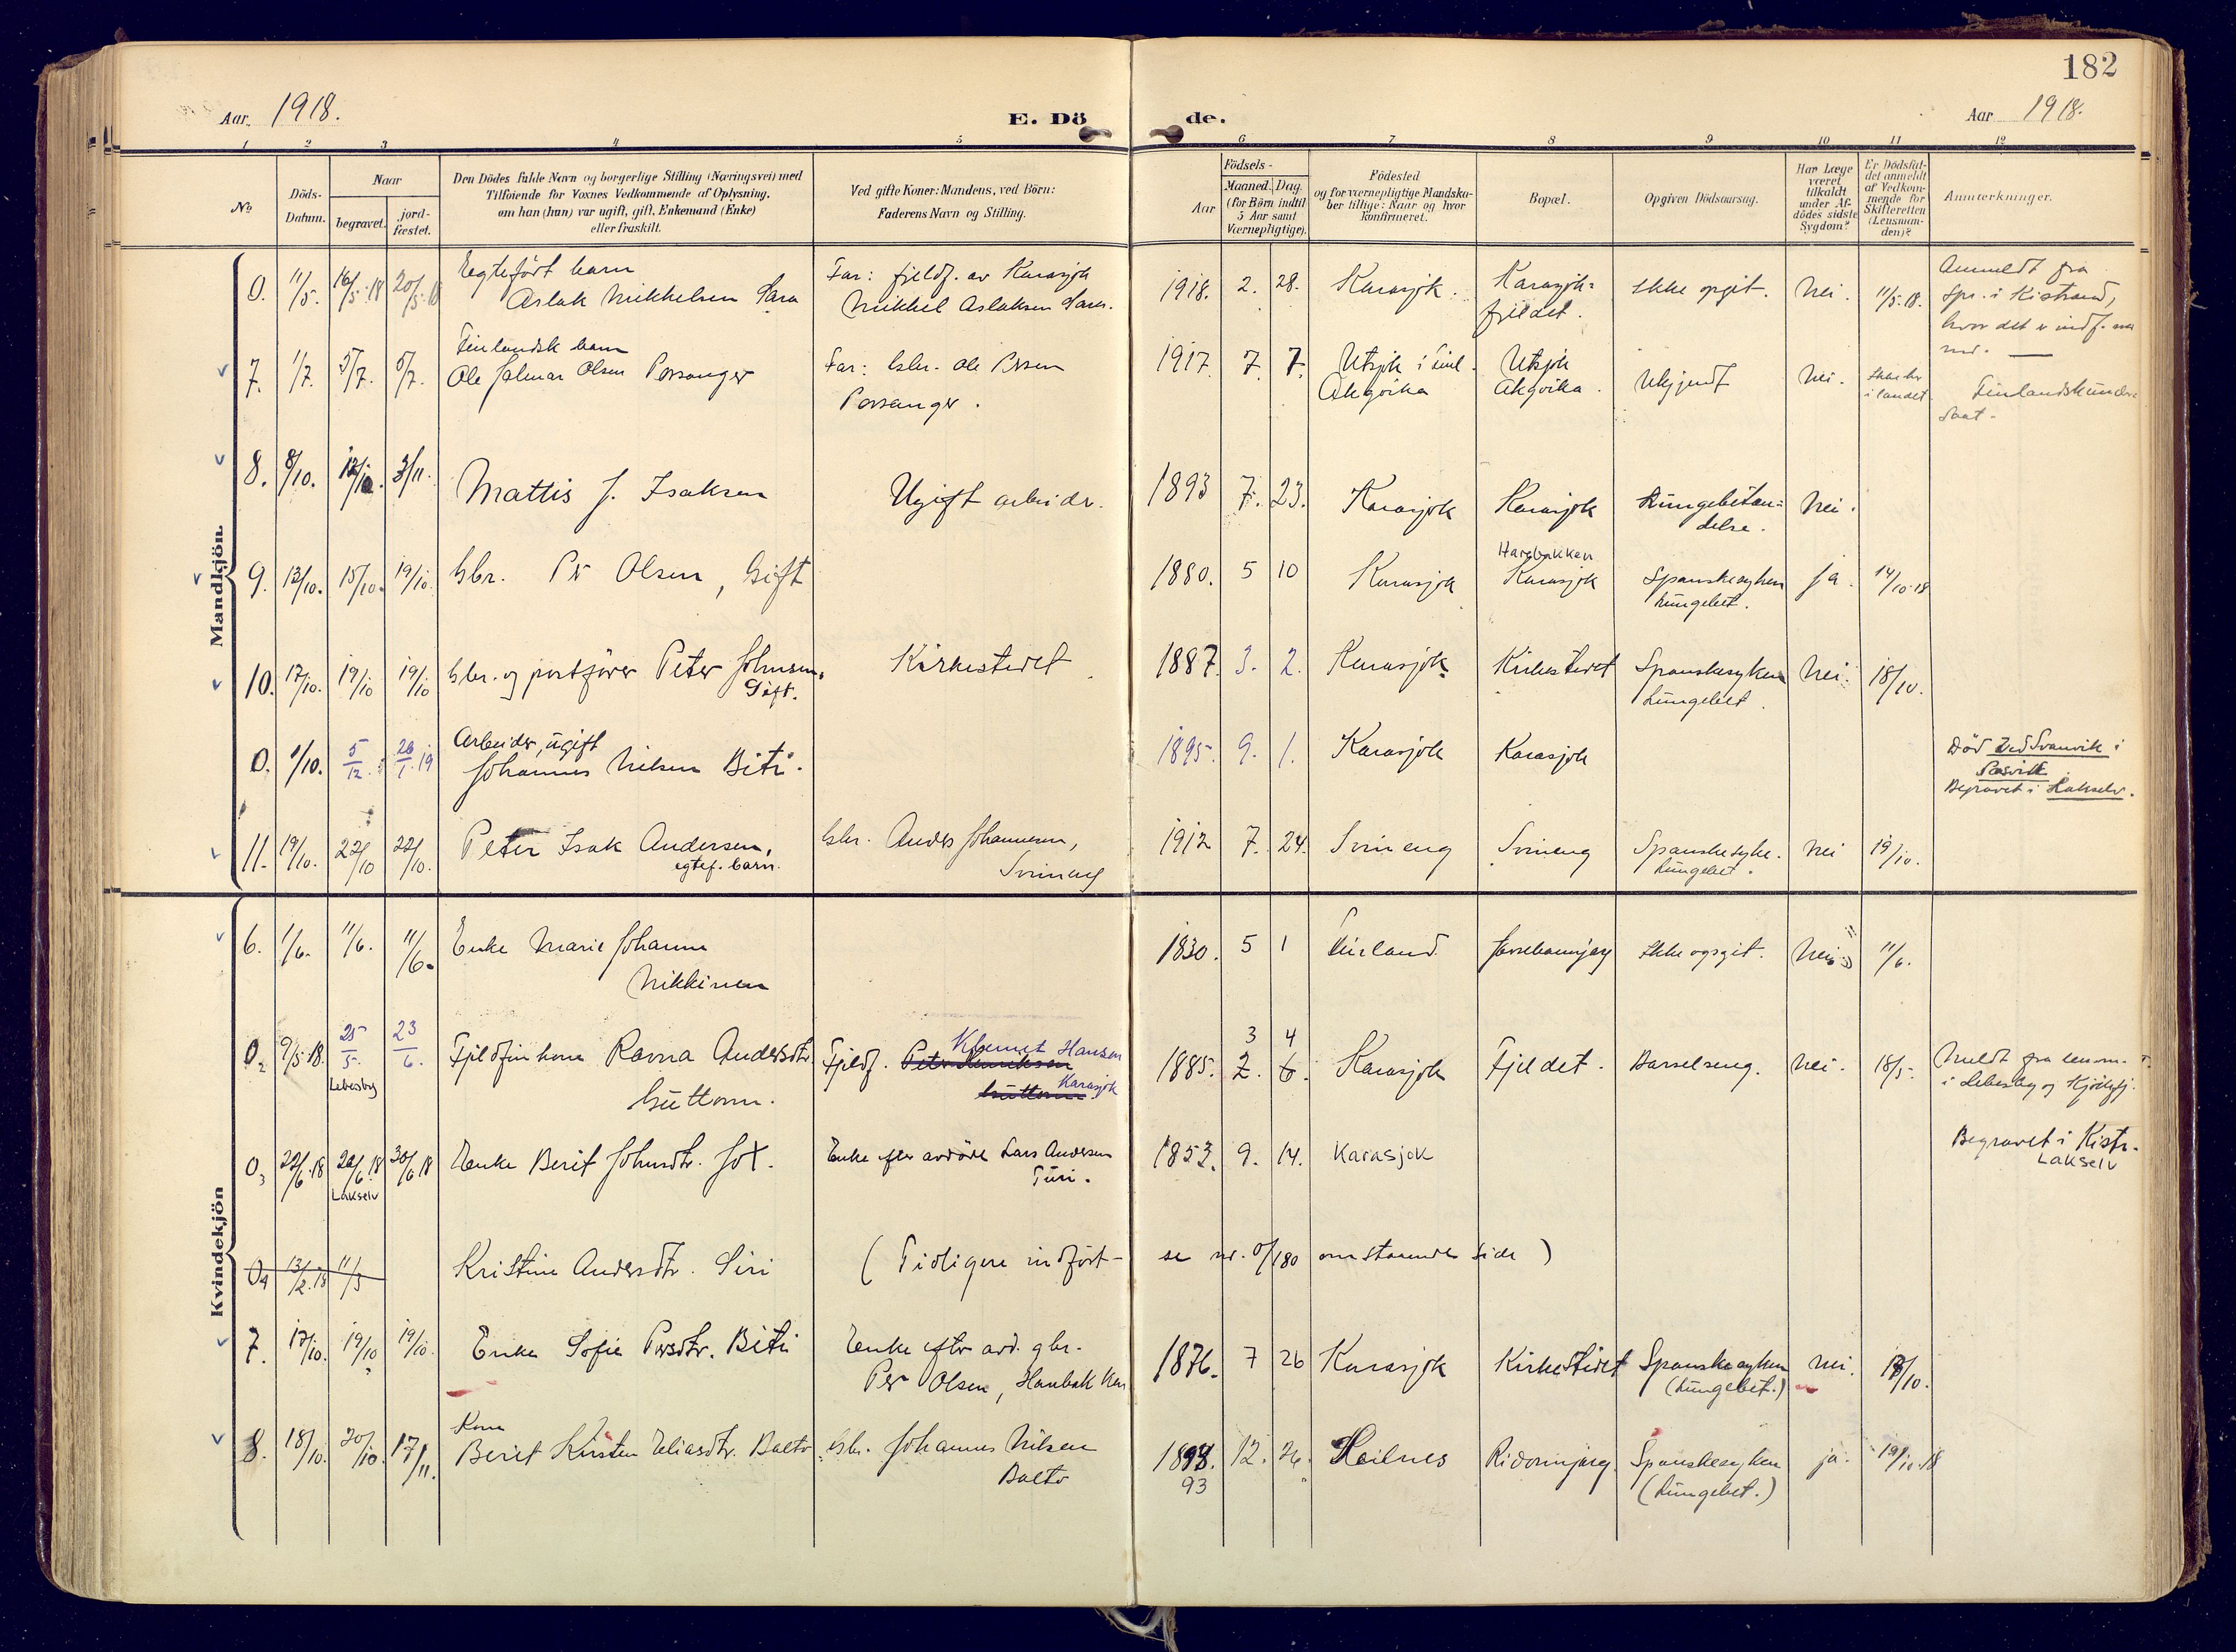 182
Aar. 1918.
E. Dö de.
Aar 1918.
1 2 3 4 5 6 7 8 9 10 11 12
No
Döds-
Datum.
Naar
begravet.
jord-
fæstet.
Den Dödes fulde Navn og borgerlige Stilling (Næringsvei) med
Tilföiende for Voxnes Vedkommende af Oplysning,
om han (hun) var ugift, gift, Enkemand (Enke)
eller fraskilt.
Ved gifte Koner: Mandens, ved Börn:
Faderens Navn og Stilling.
Födsels-
Aar
Maaned. Dag.
(for Börn indtil
5 Aar samt
Værnepligtige).
Födested
og for værnepligtige Mandska-
ber tillige: Naar og hvor
konfirmeret.
Bopæl.
Opgiven Dödsaarsag.
Har Læge
været
tilkaldt
under Af-
dödes sidste
Sygdom?
Er Dödsfal-
det anmeldt
af Vedkom-
mende for
Skifteretten
(Lensman-
den)?
Anmærkninger.
Mandkjön.
0. 11/5. 16/5.18 20/5.18
Egtefört barn
Aslak Mikkelsen Sara
Far: fjeldf. av Karasjok
Mikkel Aslaksen Sara.
1918. 2. 28. Karasjok. Karasjok-
fjeldet.
Ikke opgit. Nei. 11/5.18.
Anmeldt fra
Spr. i Kistrand,
hvor det er indf.
7. 1/7. 5/7. 5/7.
Finlandsk barn
Ole Halmar Olsen Porsanger
Far: Gbr. Ole Persen
Porsanger.
1917. 7. 7. Utsjok i Finl.
Akgvika
Utsjok
Akgvika.
Ukjendt Nei. Ikke her
i landet
Finlandsk under
saat.
8. 8/10. 12/10. 3/11.
Mattis J. Isaksen
Ugift arbeider.
1893 7. 23. Karasjok Karasjok Lungebetæn-
delse.
Nei.
9. 13/10. 15/10. 19/10.
Gbr. Per Olsen, Gift
1880. 5 10 Karasjok Haugbakken
Karasjok
Spanskesyken
Lungebet.
Ja. 14/10.18
10. 17/10. 19/10 19/10
Gbr. og postförer Peter Johnsen.
Gift.
Kirkestedet.
1887. 3. 2. Karasjok Kirkestedet Spanskesyken
Lungebet.
Nei. 18/10.
0. 1/10. 5/12. 26/1.19
Arbeider, ugift
Johannes Nilsen Biti.
1895. 9. 1. Karasjok Karasjok
Död ved Svanvik i
Pasvik
Begravet i Lakselv.
11. 19/10. 22/10 22/10.
Peter Isak Andersen,
egtef. barn.
Gbr. Anders Johannesen,
Svineng
1912 7. 24. Svineng Svineng Spanskesyke.
Lungebet.
Nei 19/10.
Kvindekjön
6. 1/6. 11/6. 11/6.
Enke Marie Johanna
Nikkinen
1830. 5 1 Finland. Ikke opgit. Nei 11/6.
0 2 9/5.18. 25/5. 23/6.
Lebesby
Fjeldfinkone Ravna Andersdtr.
Guttorm.
Fjeldf. Peter Henriksen Klemet Hansen
Guttorm Karasjok
3 4
1885. 2. 6. Karasjok Fjeldet. Barselseng. Nei. 18/5.
Meldt fra lensm.
i Lebesby og Kjöllefj.
0 3 22/6.18 26/6.18 30/6 18
Lakselv
Enke Berit Johnsdtr. Jox.
Enke efter avdöde Lars Andersen
Turi.
1853. 9. 14. Karasjok
Begravet i Kistr.
Lakselv
0 4 13/2.18 11/3
Kristine Andersdtr. Siri
( Tidligere indfört - se nr. 0/180 omstaaende side )
7. 17/10. 19/10 19/10.
Enke Sofie Persdtr. Biti
Enke efter avd. gbr.
Per Olsen, Haubakken
1876. 7 26 Karasjok Kirkestedet Spanskesyken
(Lungebet.)
nei. 18/10.
8. 18/10. 20/10. 17/11.
Kone
Berit Kirsten Eliasdtr. Balto
Gbr. Johannes Nilsen
Balto
1893. 12. 26. Heilnes Ridonnjarg. Spanskesyken
(Lungebet.)
ja. 19/10.18
93